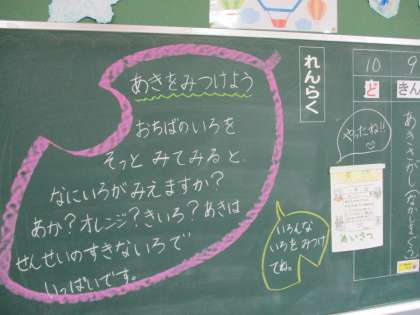 あきをみつけよう
おちばのいろを
そっと みてみると
なにいろがみえますか?
あか?オレンジ?きいろ?あきは
せんせいのすきないろで
いっぱいです。
いろんな
いろをみつけ
てね。
れんらく
やったね!!
あいさつ
10
ど
9
きん